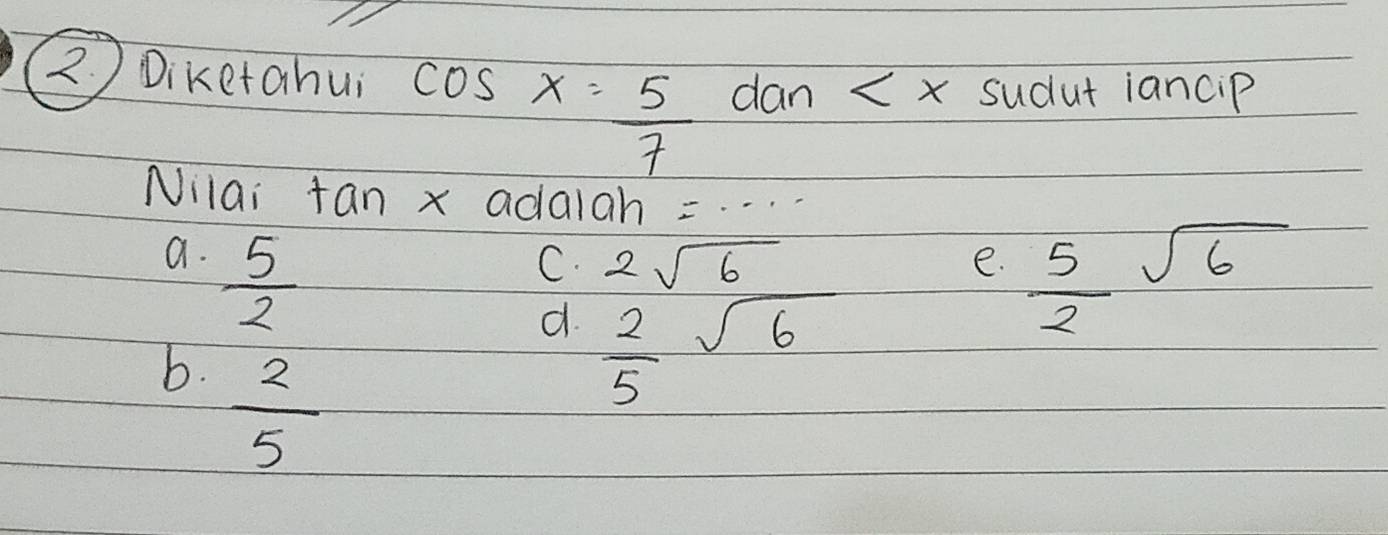 2. Diketahui cos x = 5/7 dan < x sudut lancip
Nilai tan x adalah = .....
a. 5/2 c. 2√6 e. 5/2 √6
b. 2/5 d. 2/5 √6